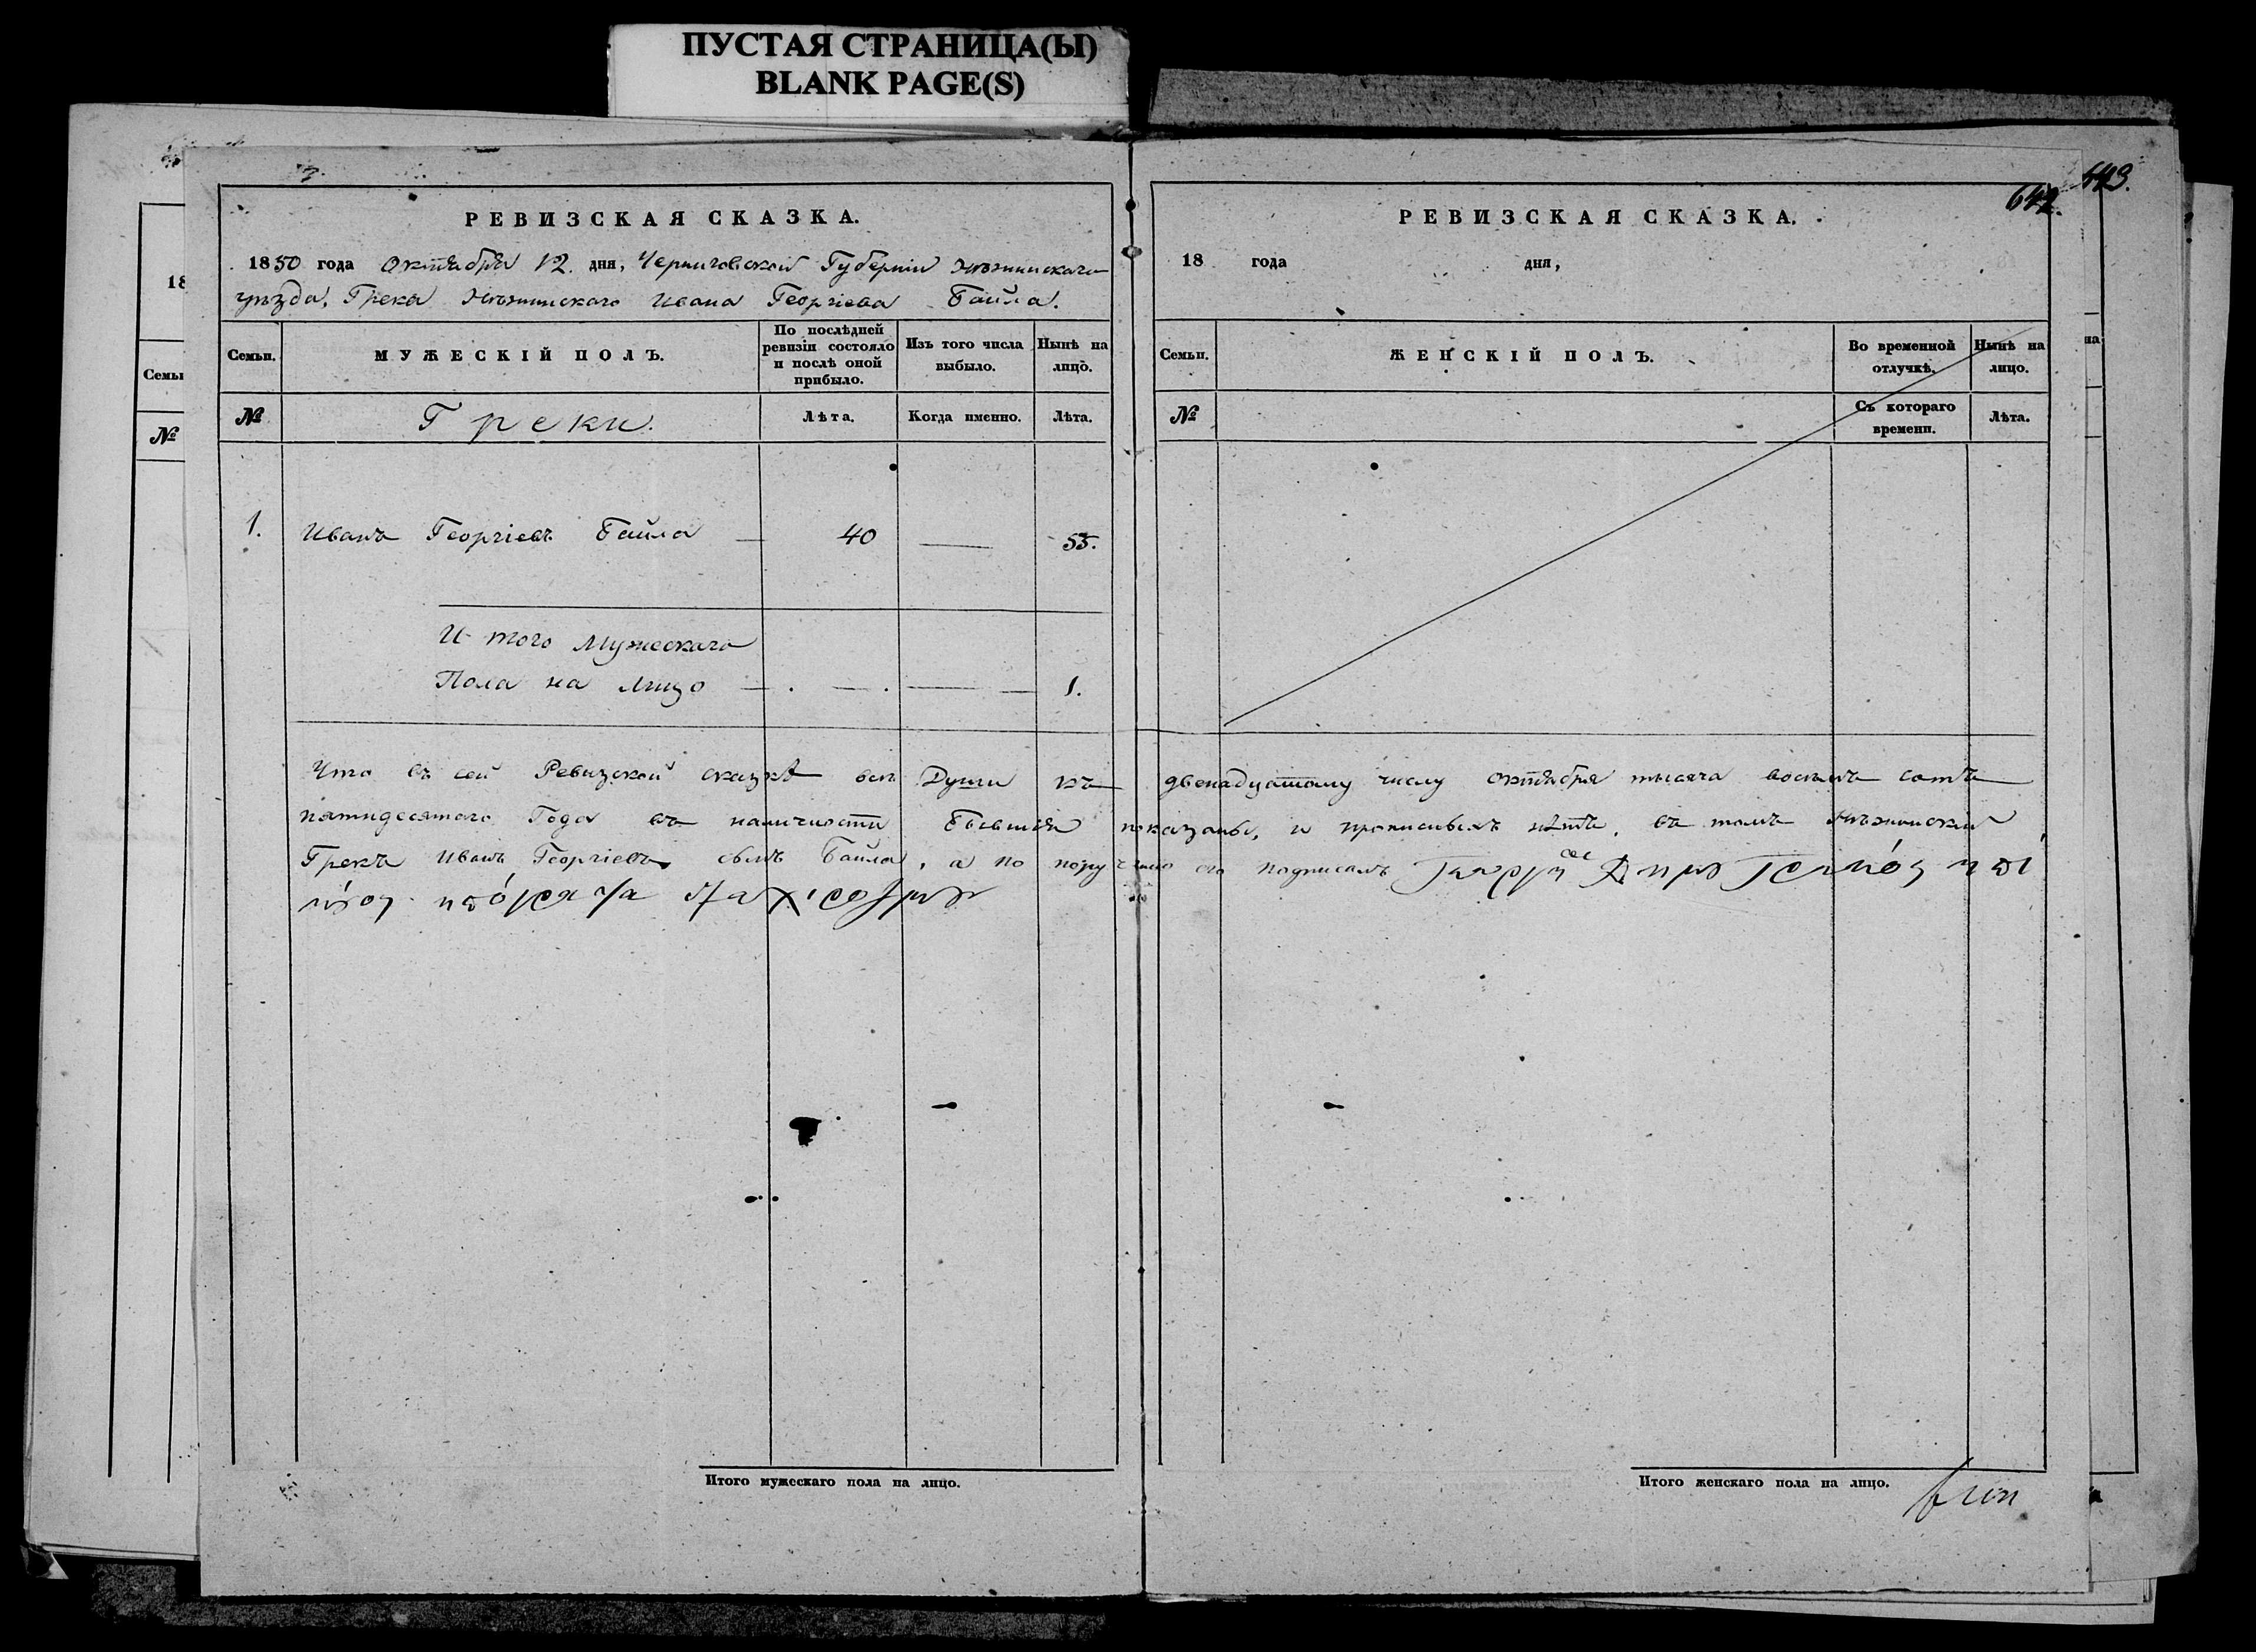 ПУСТАЯ СТРАНИЦА(Ы)
BLANK PAGE(S)
РЕВИЗСКАЯ СКАЗКА.
1850 года Октября 12 дня, Черниговской Губерніи Нѣжинскаго
уѣзда, Грека Нѣжинскаго Ивана Георгіева Баила.
Семьи.
МУЖЕСКІЙ ПОЛЪ.
По послѣдней ревизіи состояло и послѣ оной прибыло.
Изъ того числа выбыло.
Нынѣ на лицо.
№
Греки.
Лѣта.
Когда именно.
Лѣта.
1. Иванъ Георгіевъ Баила — 40 — 55.
И того Мужескаго
Пола на лицо — 1.
Итого мужескаго пола на лицо.
642.
643.
РЕВИЗСКАЯ СКАЗКА.
18 года дня,
Семьи.
ЖЕНСКІЙ ПОЛЪ.
Во временной отлучкѣ.
Нынѣ на лицо.
№
Съ котораго времени.
Лѣта.
Что въ сей Ревизской сказкѣ всѣ Души къ двенадцатому числу октября тысяча восемь сотъ
пятидесятаго Года въ наличности бывшія показаны, и прописныхъ нѣтъ, въ томъ Нѣжинскій
Грекъ Иванъ Георгіевъ сынъ Баила, а по поручению его подписалъ
Итого женскаго пола на лицо.
18
Семьи
№
на